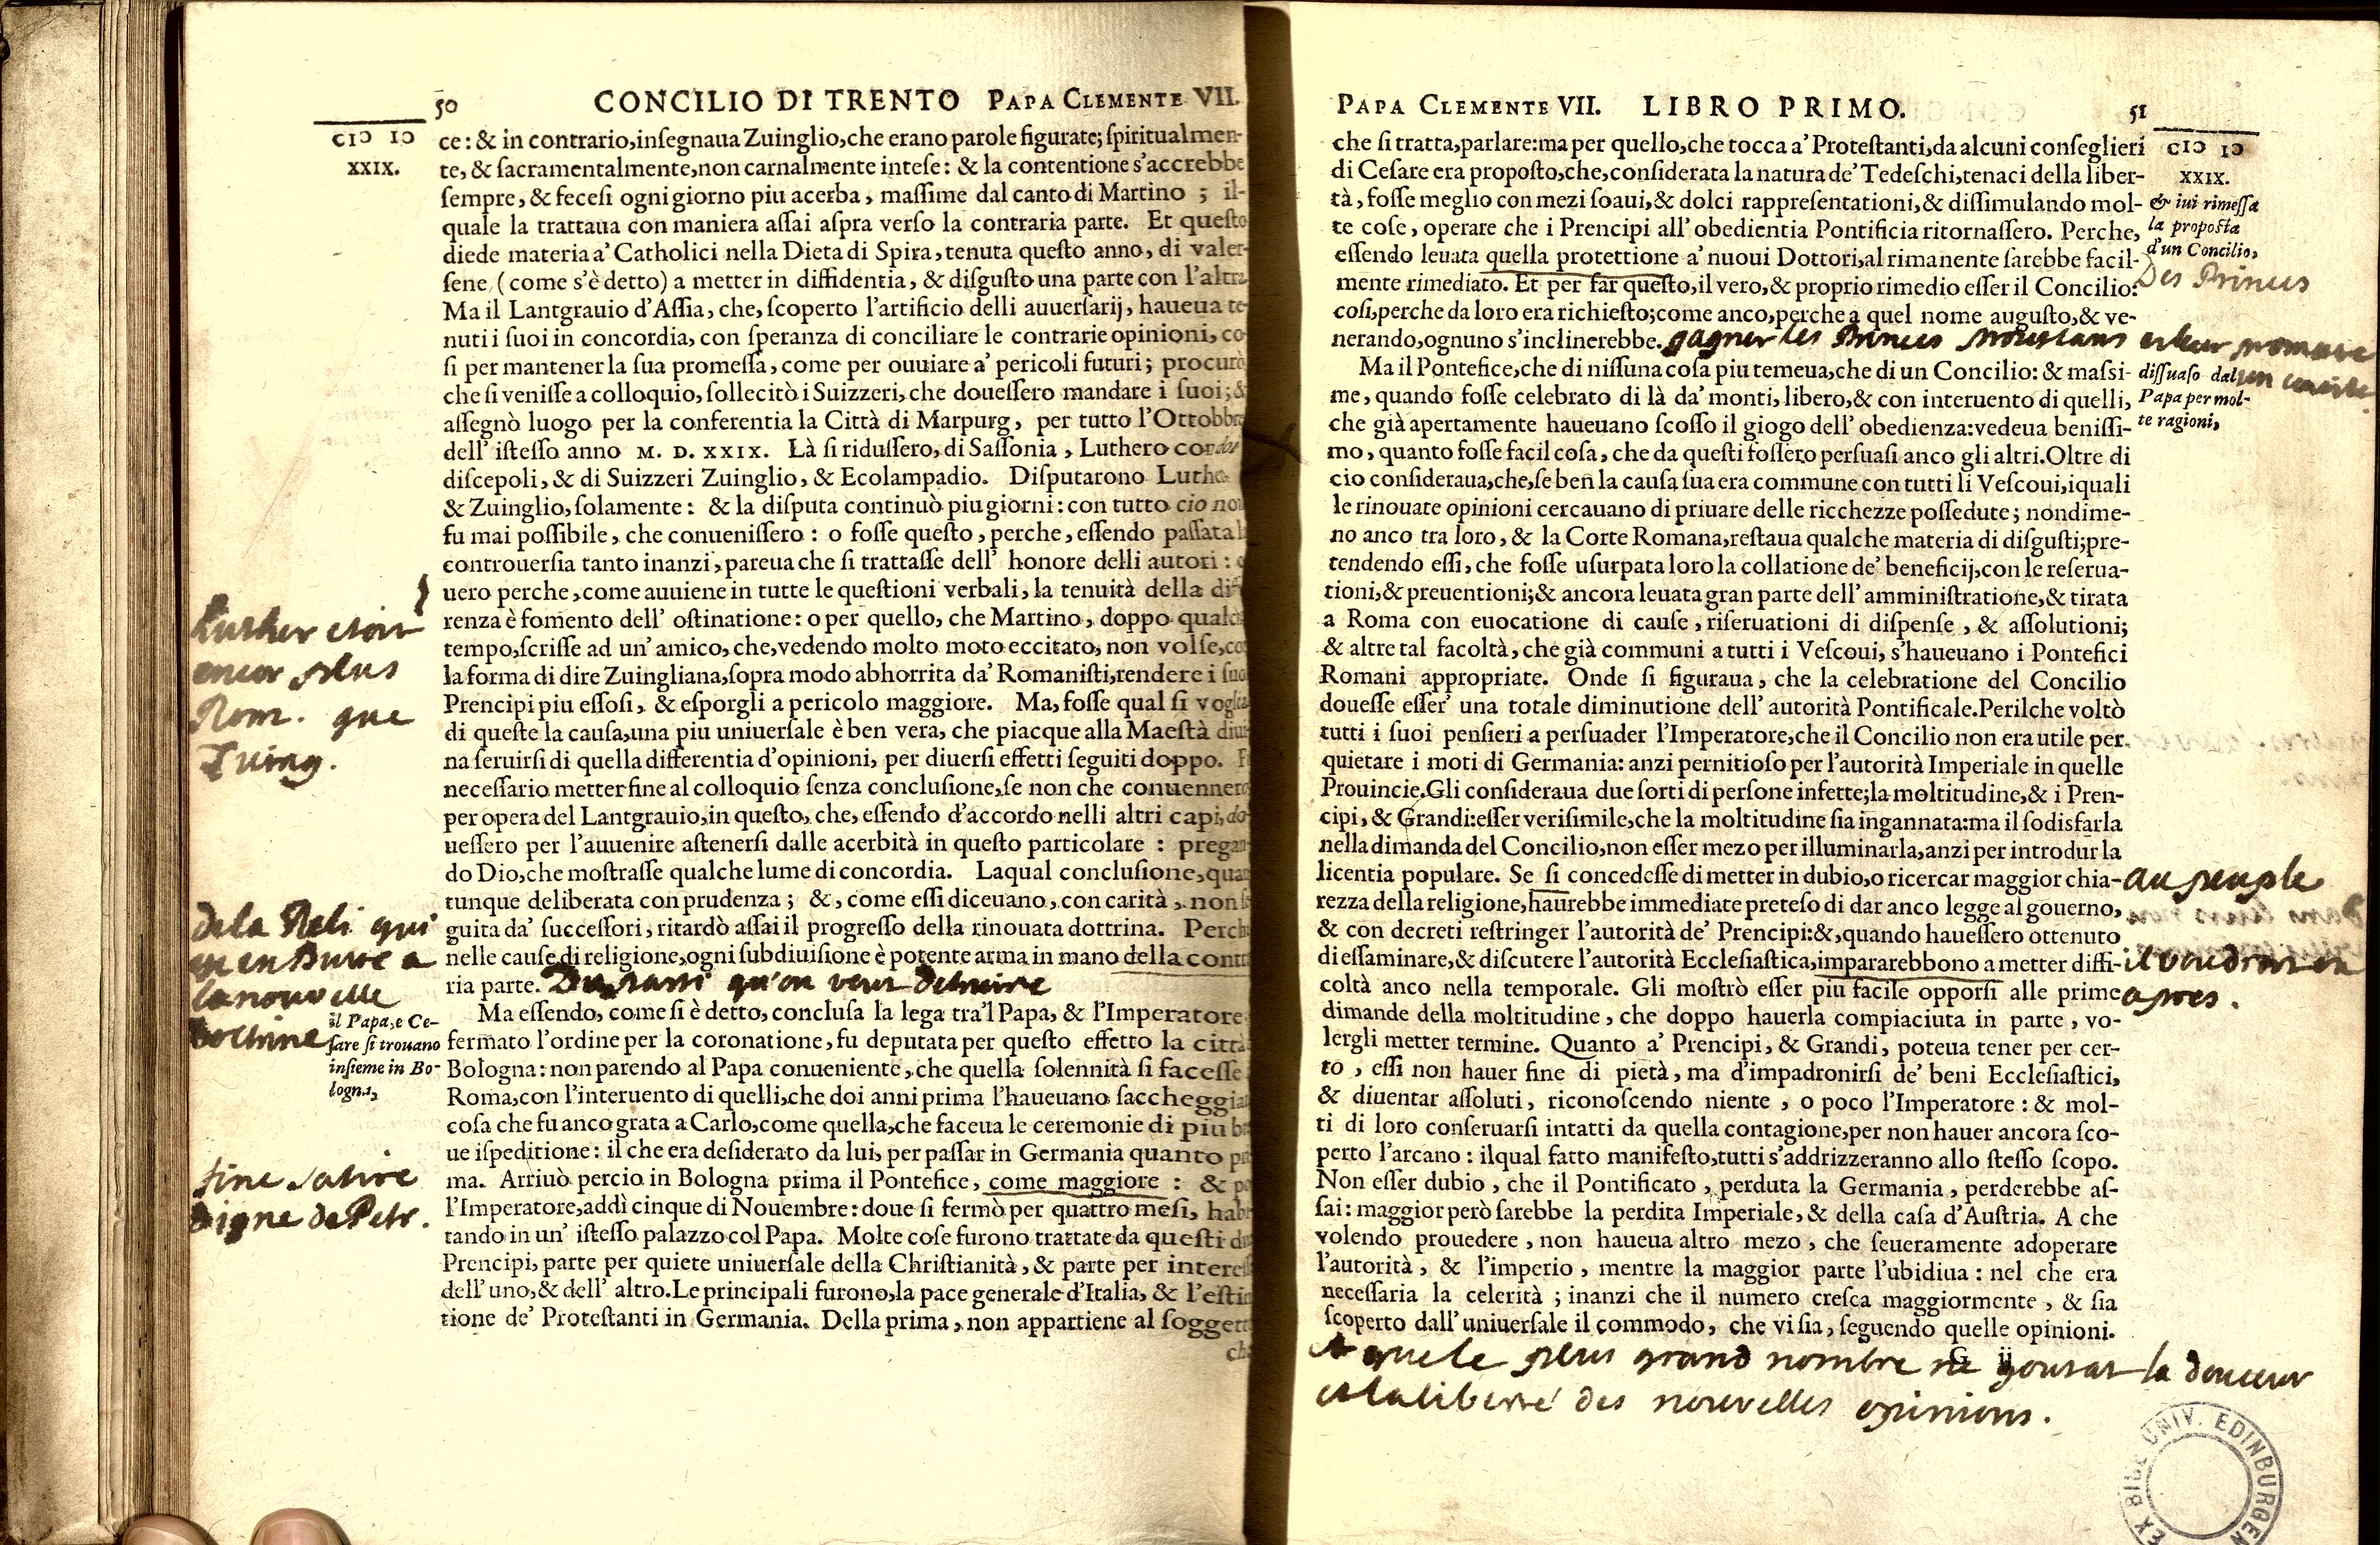 50 CONCILIO DI TRENTO PAPA CLEMENTE VII.
CIↃ IↃ
XXIX.
ce: & in contrario,insegnaua Zuinglio,che erano parole figurate; spiritualmen-
te, & sacramentalmente,non carnalmente intese: & la contentione s'accrebbe
sempre, & fecesi ogni giorno piu acerba, massime dal canto di Martino ; il-
quale la trattaua con maniera assai aspra verso la contraria parte. Et questo
diede materia a' Catholici nella Dieta di Spira, tenuta questo anno, di valer-
sene (come s'è detto) a metter in diffidentia, & disgusto una parte con l'altra
Ma il Lantgrauio d'Assia, che, scoperto l'artificio delli auuersarij, haueua te-
nuti i suoi in concordia, con speranza di conciliare le contrarie opinioni, co-
si per mantener la sua promessa, come per ouuiare a' pericoli futuri; procurò
che si venisse a colloquio, sollecitò i Suizzeri, che douessero mandare i suoi; &
assegnò luogo per la conferentia la Città di Marpurg, per tutto l'Ottobre
dell' istesso anno M. D. XXIX. Là si ridussero, di Sassonia, Luthero con
discepoli, & di Suizzeri Zuinglio, & Ecolampadio. Disputarono
& Zuinglio, solamente: & la disputa continuò piu giorni: con tutto cio non
fu mai possibile, che conuenissero: o fosse questo, perche, essendo passata
controuersia tanto inanzi, pareua che si trattasse dell' honore delli autori:
uero perche, come auuiene in tutte le questioni verbali, la tenuità della
renza è fomento dell' ostinatione: o per quello, che Martino, doppo
tempo,scrisse ad un' amico, che,vedendo molto moto eccitato, non volse,
la forma di dire Zuingliana,sopra modo abhorrita da' Romanisti,rendere i
Prencipi piu essosi, & esporgli a pericolo maggiore. Ma, fosse qual si voglia
di queste la causa,una piu uniuersale è ben vera, che piacque alla Maestà
na seruirsi di quella differentia d'opinioni, per diuersi effetti seguiti doppo.
necessario metter fine al colloquio senza conclusione,se non che conuennero
per opera del Lantgrauio,in questo, che, essendo d'accordo nelli altri capi, do-
uessero per l'auuenire astenersi dalle acerbità in questo particolare : pregan-
do Dio,che mostrasse qualche lume di concordia. Laqual conclusione,
tunque deliberata con prudenza ; &, come essi diceuano, con carità, non
guita da' successori, ritardò assai il progresso della rinouata dottrina.
nelle cause di religione,ogni subdiuisione è potente arma in mano della
ria parte. Du parti qu'on veut detruire
Ma essendo, come si è detto, conclusa la lega tra'l Papa, & l'Imperatore
fermato l'ordine per la coronatione, fu deputata per questo effetto la città
Bologna: non parendo al Papa conueniente, che quella solennità si facesse
Roma,con l'interuento di quelli,che doi anni prima l'haueuano
cosa che fu anco grata a Carlo,come quella,che faceua le ceremonie di piu
ue ispeditione: il che era desiderato da lui, per passar in Germania quanto
ma. Arriuò percio in Bologna prima il Pontefice, come maggiore : &
l'Imperatore,addì cinque di Nouembre: doue si fermò per quattro mesi,
tando in un' istesso palazzo col Papa. Molte cose furono trattate da questi
Prencipi, parte per quiete uniuersale della Christianità, & parte per
dell' uno,& dell' altro.Le principali furono,la pace generale d'Italia, &
tione de' Protestanti in Germania. Della prima, non appartiene al
Luther etoit
encor plus
Rom. que
Zuing.
de la Reli qui
a
la nouvelle
doctrine
il Papa, e Ce-
sare si trouano
insieme in Bo-
logna,
fine satire
digne de Petr.
PAPA CLEMENTE VII. LIBRO PRIMO. 51
CIↃ IↃ
XXIX.
che si tratta,parlare:ma per quello,che tocca a' Protestanti,da alcuni conseglieri
di Cesare era proposto,che,considerata la natura de' Tedeschi,tenaci della liber-
tà, fosse meglio con mezi soaui,& dolci rappresentationi,& dissimulando mol-
te cose, operare che i Prencipi all' obedientia Pontificia ritornassero. Perche,
essendo leuata quella protettione a' nuoui Dottori,al rimanente sarebbe facil-
mente rimediato. Et per far questo,il vero,& proprio rimedio esser il Concilio:
cosi,perche da loro era richiesto;come anco,perche a quel nome augusto,& ve-
nerando,ognuno s'inclinerebbe. gagner les Princes protestans et leur
& iui rimessa
la proposta
d'un Concilio,
Des Princes
Ma il Pontefice,che di nissuna cosa piu temeua,che di un Concilio: & massi-
me, quando fosse celebrato di là da' monti, libero,& con interuento di quelli,
che già apertamente haueuano scosso il giogo dell' obedienza:vedeua benissi-
mo, quanto fosse facil cosa, che da questi fossero persuasi anco gli altri.Oltre di
cio consideraua,che,se ben la causa sua era commune con tutti li Vescoui,i quali
le rinouate opinioni cercauano di priuare delle ricchezze possedute; nondime-
no anco tra loro, & la Corte Romana,restaua qualche materia di disgusti;pre-
tendendo essi, che fosse usurpata loro la collatione de' beneficij,con le reserua-
tioni,& preuentioni;& ancora leuata gran parte dell' amministratione,& tirata
a Roma con euocatione di cause, riseruationi di dispense , & assolutioni;
& altre tal facoltà, che già communi a tutti i Vescoui, s'haueuano i Pontefici
Romani appropriate. Onde si figuraua, che la celebratione del Concilio
douesse esser' una totale diminutione dell' autorità Pontificale.Perilche voltò
tutti i suoi pensieri a persuader l'Imperatore,che il Concilio non era utile per
quietare i moti di Germania: anzi pernitioso per l'autorità Imperiale in quelle
Prouincie.Gli consideraua due sorti di persone infette;la moltitudine,& i Pren-
cipi, & Grandi:esser verisimile,che la moltitudine sia ingannata:ma il sodisfarla
nella dimanda del Concilio,non esser mezo per illuminarla,anzi per introdur la
licentia populare. Se si concedesse di metter in dubio,o ricercar maggior chia-
rezza della religione,haurebbe immediate preteso di dar anco legge al gouerno,
& con decreti restringer l'autorità de' Prencipi:&,quando hauessero ottenuto
di essaminare,& discutere l'autorità Ecclesiastica,impararebbono a metter diffi-
coltà anco nella temporale. Gli mostrò esser piu facile opporsi alle prime
dimande della moltitudine, che doppo hauerla compiaciuta in parte, vo-
lergli metter termine. Quanto a' Prencipi, & Grandi, poteua tener per cer-
to , essi non hauer fine di pietà, ma d'impadronirsi de' beni Ecclesiastici,
& diuentar assoluti, riconoscendo niente , o poco l'Imperatore : & mol-
ti di loro conseruarsi intatti da quella contagione,per non hauer ancora sco-
perto l'arcano : ilqual fatto manifesto,tutti s'addrizzeranno allo stesso scopo.
Non esser dubio , che il Pontificato , perduta la Germania , perderebbe as-
sai: maggior però sarebbe la perdita Imperiale, & della casa d'Austria. A che
volendo prouedere , non haueua altro mezo , che seueramente adoperare
l'autorità, & l'imperio , mentre la maggior parte l'ubidiua : nel che era
necessaria la celerità ; inanzi che il numero cresca maggiormente , & sia
scoperto dall' uniuersale il commodo, che vi sia, seguendo quelle opinioni.
dissuaso dal
Papa per mol-
te ragioni,
au peuple
il voudroit en
apres.
G ij
que le plus grand nombre ne goutat la douceur
et la liberté des nouvelles opinions.
EX BIBL. UNIV. EDINBURGEN